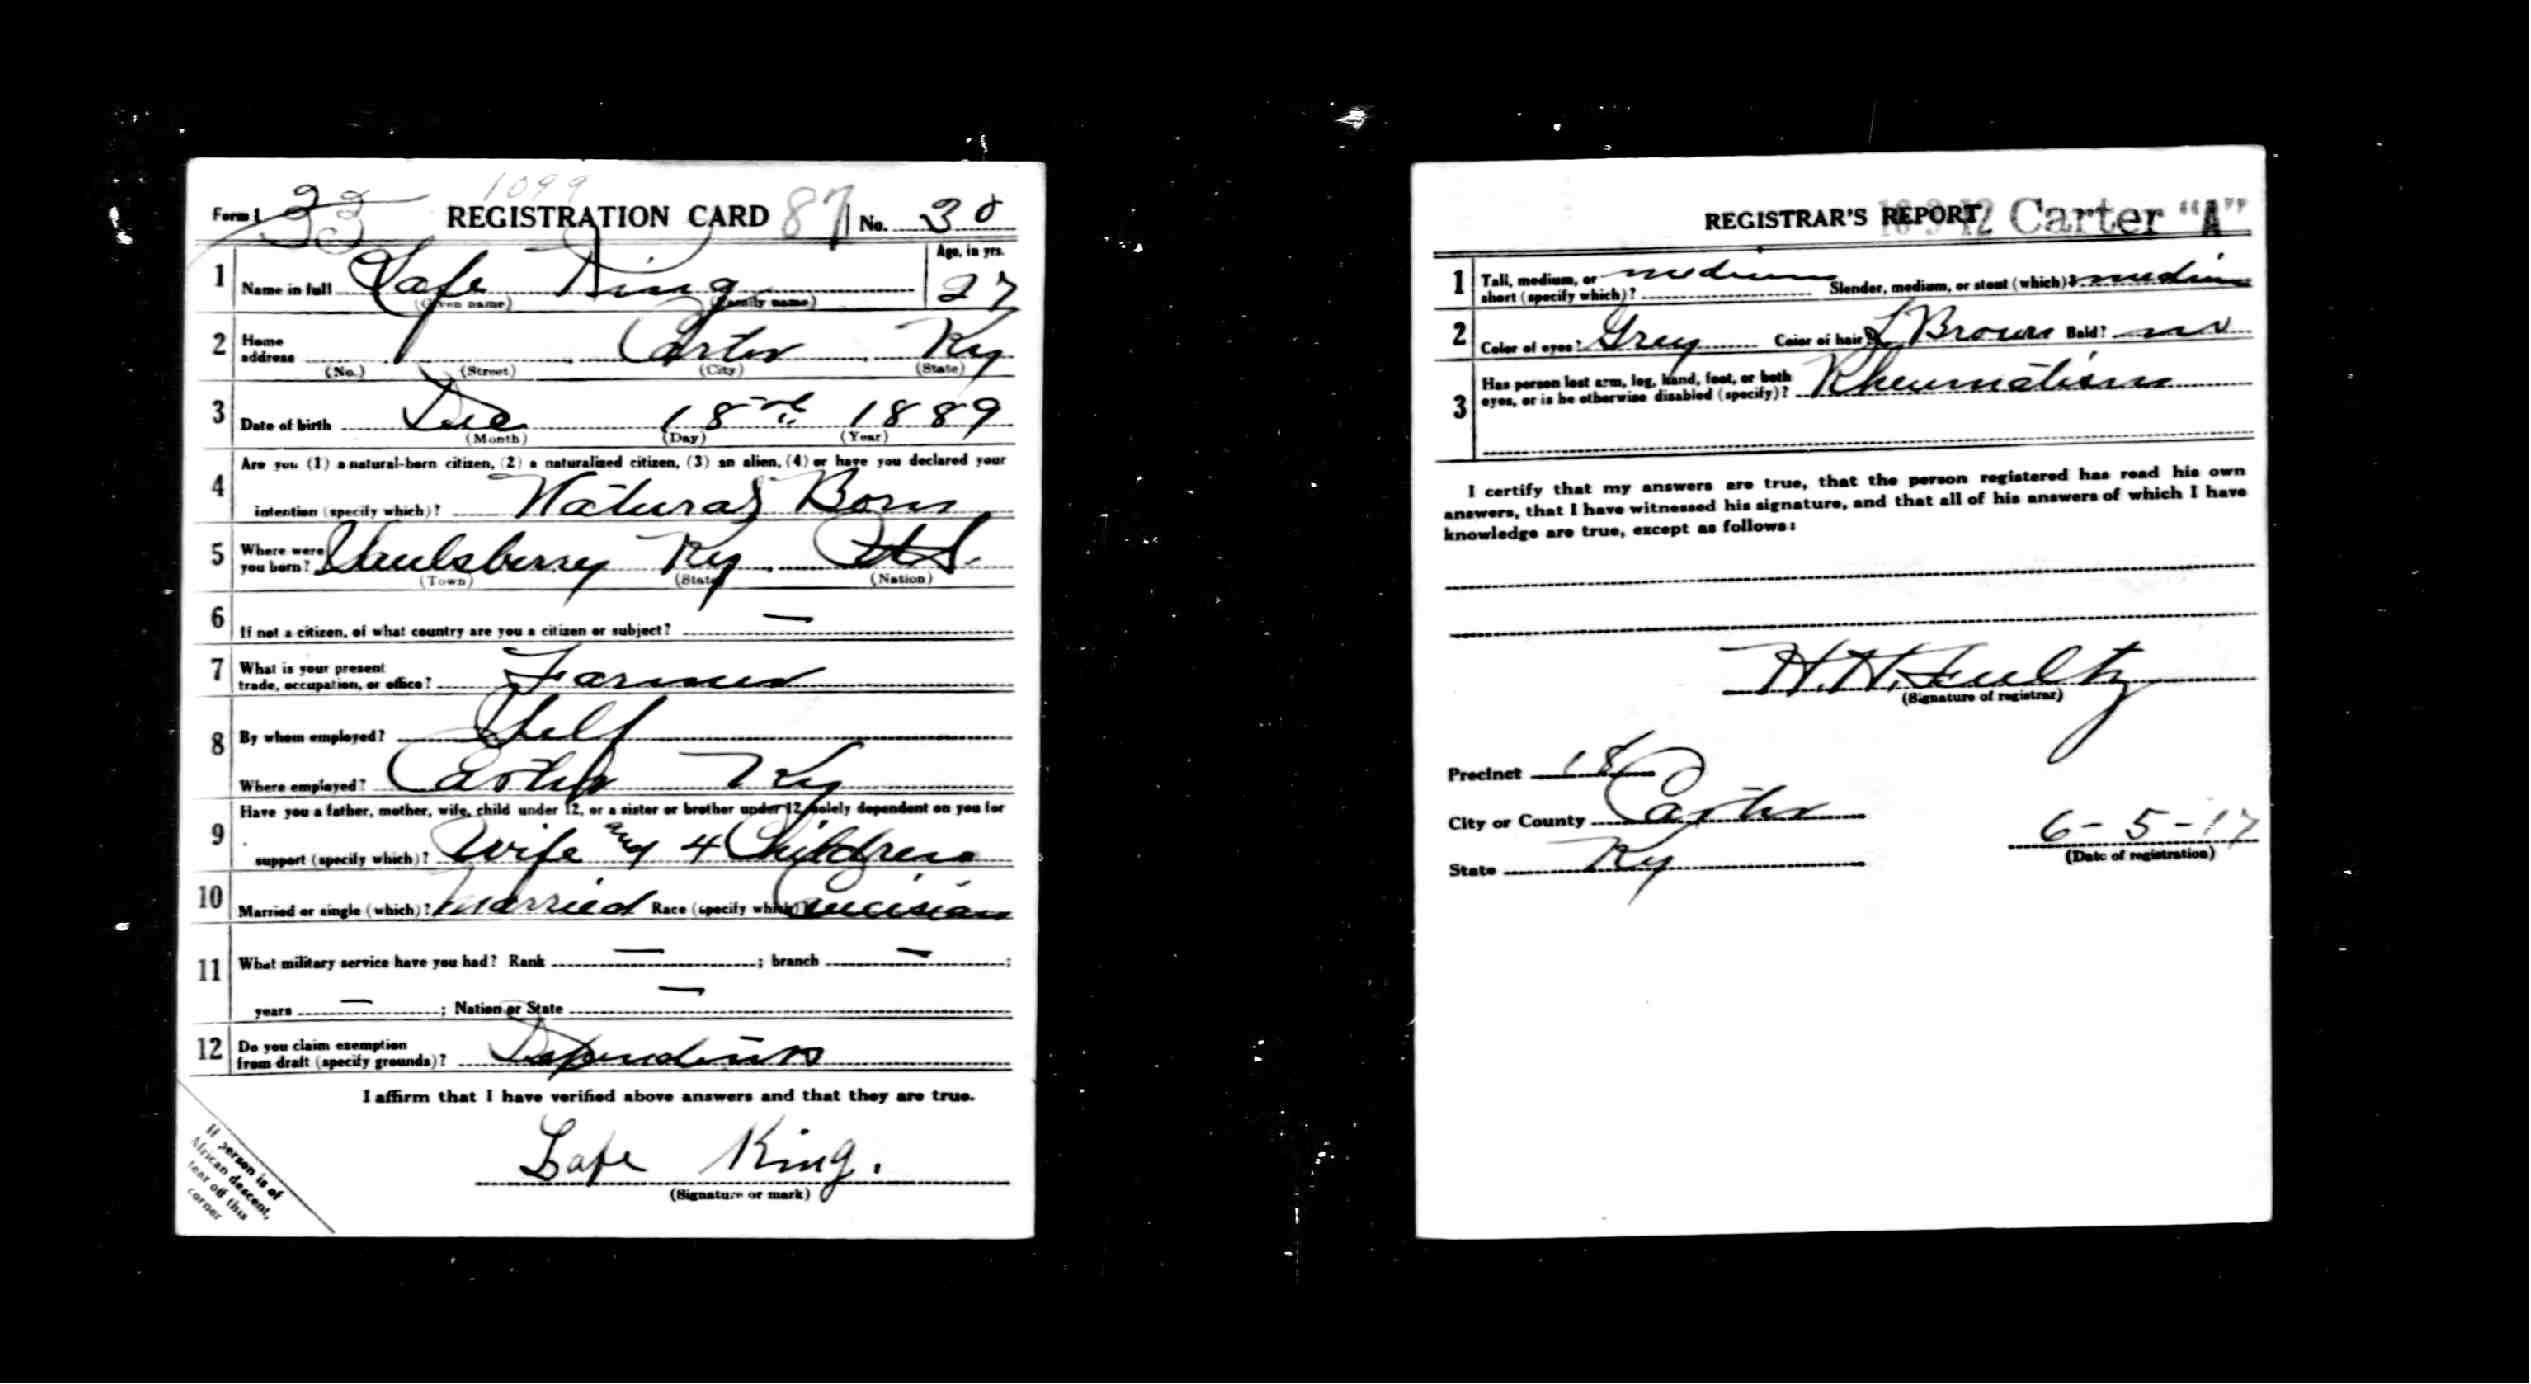 1099
Form 1 33 REGISTRATION CARD 87 No. 30
1 Name in full Lafe King Age, in yrs. 27
(Given name) (Family name)
2 Home address Carter Ky
(No.) (Street) (City) (State)
3 Date of birth Dec 18 1889
(Month) (Day) (Year)
4 Are you (1) a natural-born citizen, (2) a naturalized citizen, (3) an alien, (4) or have you declared your
intention (specify which)? Natural Born
5 Where were you born? Saulsberry Ky U.S.
(Town) (State) (Nation)
6 If not a citizen, of what country are you a citizen or subject? —
7 What is your present trade, occupation, or office? Farmer
8 By whom employed? Self
Where employed? Carter Ky
9 Have you a father, mother, wife, child under 12, or a sister or brother under 12, solely dependent on you for
support (specify which)? Wife and 4 Children
10 Married or single (which)? Married Race (specify which)? Caucisian
11 What military service have you had? Rank — ; branch — ;
years — ; Nation or State —
12 Do you claim exemption from draft (specify grounds)?
I affirm that I have verified above answers and that they are true.
Lafe King.
(Signature or mark)
If person is of
African descent,
tear off this
corner
REGISTRAR'S REPORT Carter "A"
1 Tall, medium, or short (specify which)? medium Slender, medium, or stout (which)? medium
2 Color of eyes? Grey Color of hair? L Brown Bald? no
3 Has person lost arm, leg, hand, foot, or both eyes, or is he otherwise disabled (specify)? Rheumatism
I certify that my answers are true, that the person registered has read his own
answers, that I have witnessed his signature, and that all of his answers of which I have
knowledge are true, except as follows:
H. H. Fultz
(Signature of registrar)
Precinct 18
City or County Carter
State Ky
6-5-17
(Date of registration)